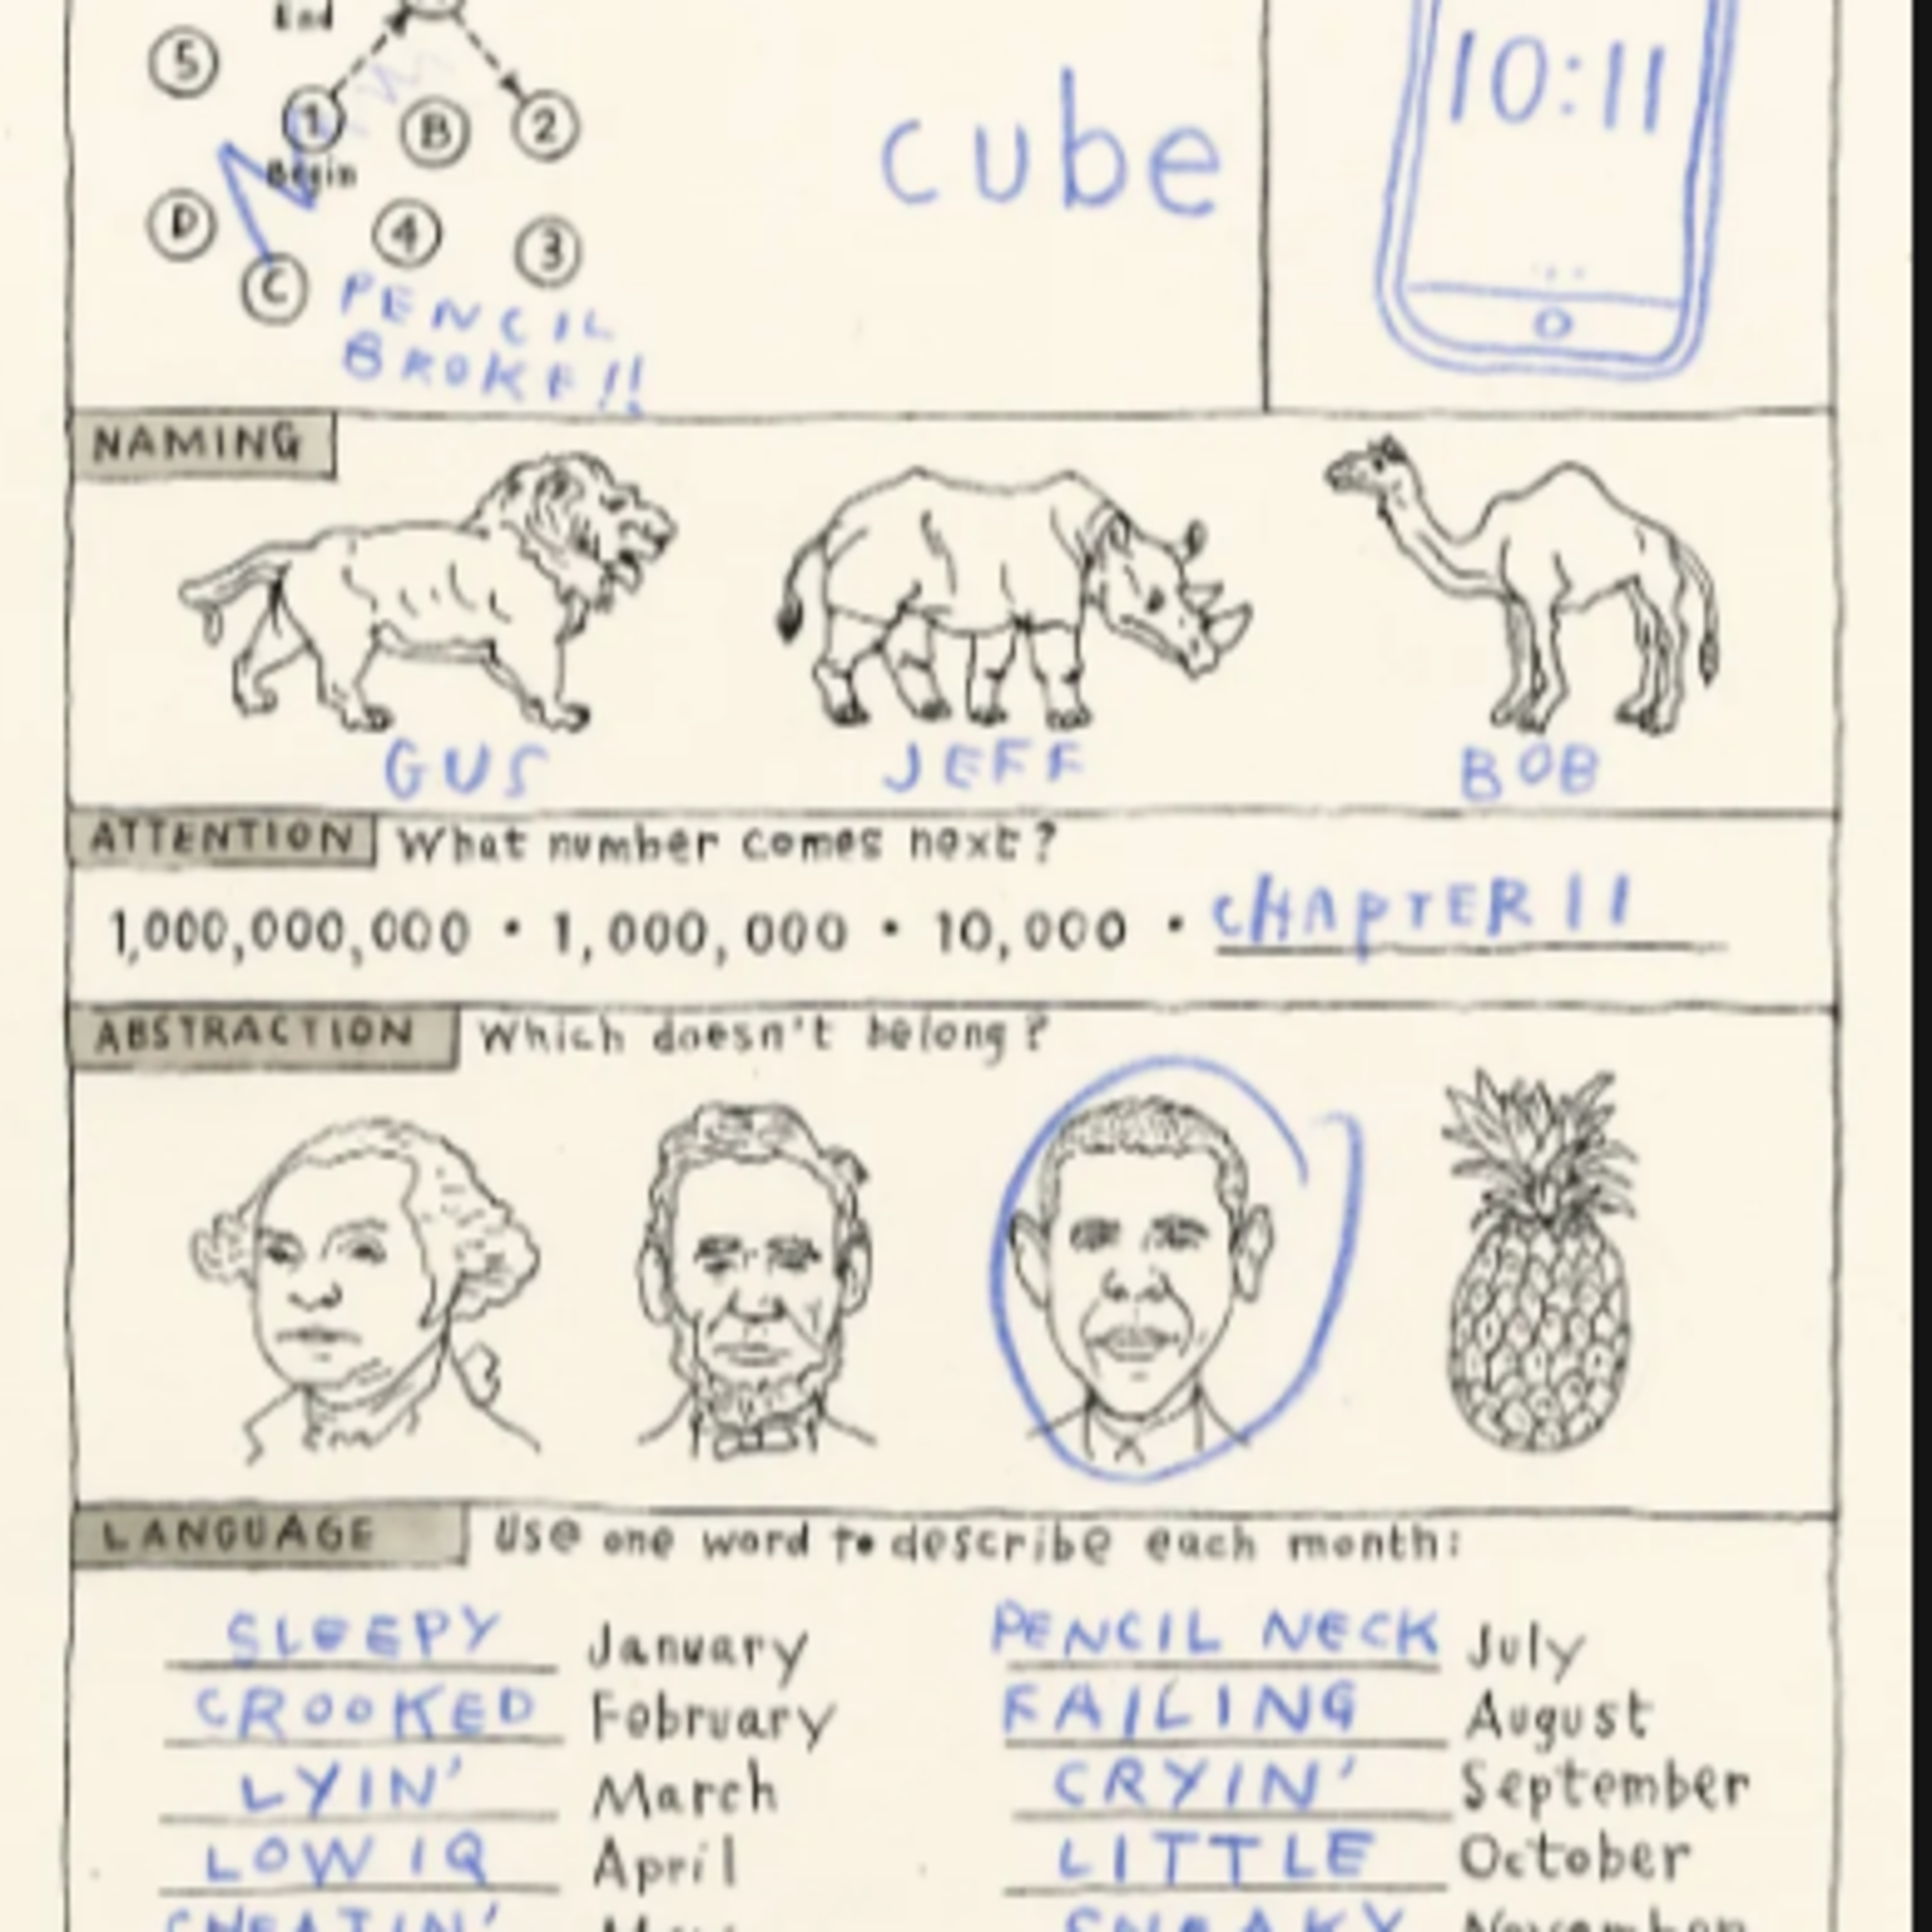 End
5
1
B
2
Begin
D
4
3
C
PENCIL
BROKE!!
cube
10:11
NAMING
GUS
JEFF
BOB
ATTENTION What number comes next?
1,000,000,000 • 1,000,000 • 10,000 • CHAPTER 11
ABSTRACTION Which doesn't belong?
LANGUAGE Use one word to describe each month:
SLEEPY January
CROOKED February
LYIN' March
LOW IQ April
CHEATIN' May
PENCIL NECK July
FAILING August
CRYIN' September
LITTLE October
SNEAKY November